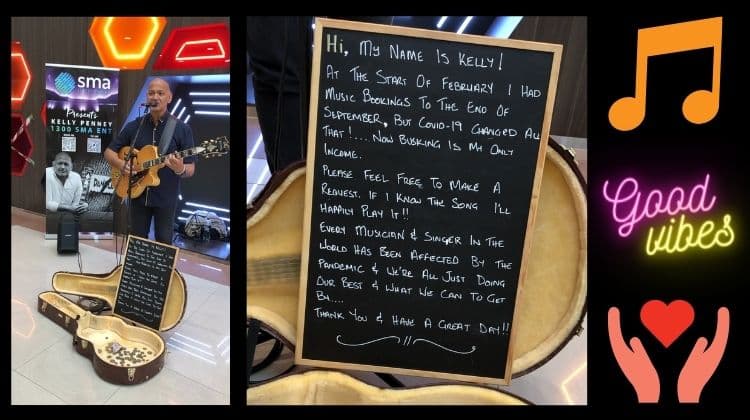 sma
Presents
KELLY PENNEY
1300 SMA ENT
Hi, My Name Is Kelly!
At The Start Of February I Had
Music Bookings To The End Of
September, But Covid-19 Changed All
That!.... Now Busking Is My Only
Income.
Please Feel Free To Make A
Request. If I Know The Song I'll
Happily Play It!!
Every Musician & Singer In The
World Has Been Affected By The
Pandemic & We're All Just Doing
Our Best & What We Can To Get
By....
Thank You & Have A Great Day!!
Good
vibes